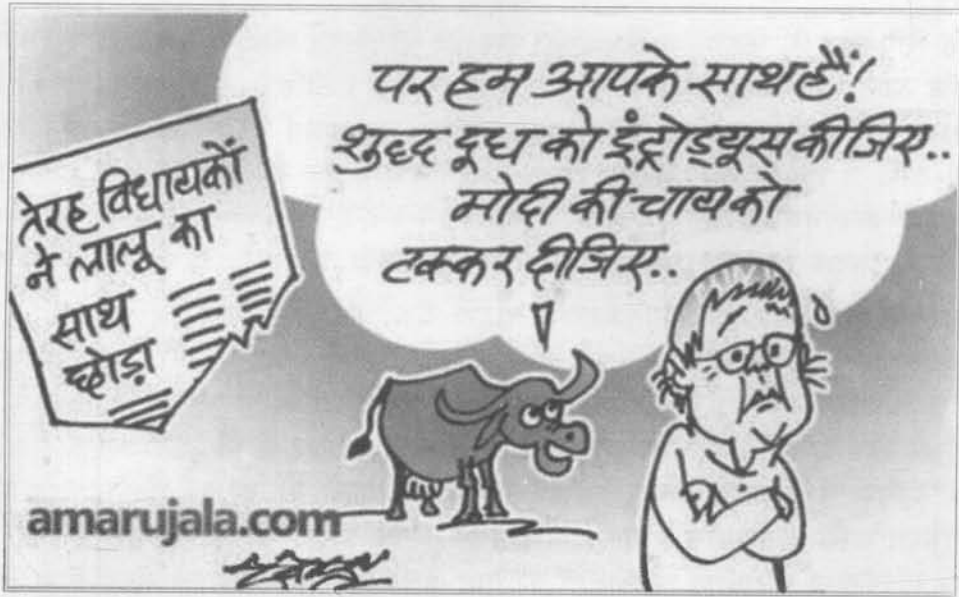 तेरह विधायकों
ने लालू का
साथ
छोड़ा
पर हम आपके साथ हैं!
शुद्ध दूध को इंट्रोड्यूस कीजिए..
मोदी की चाय को
टक्कर दीजिए..
amarujala.com